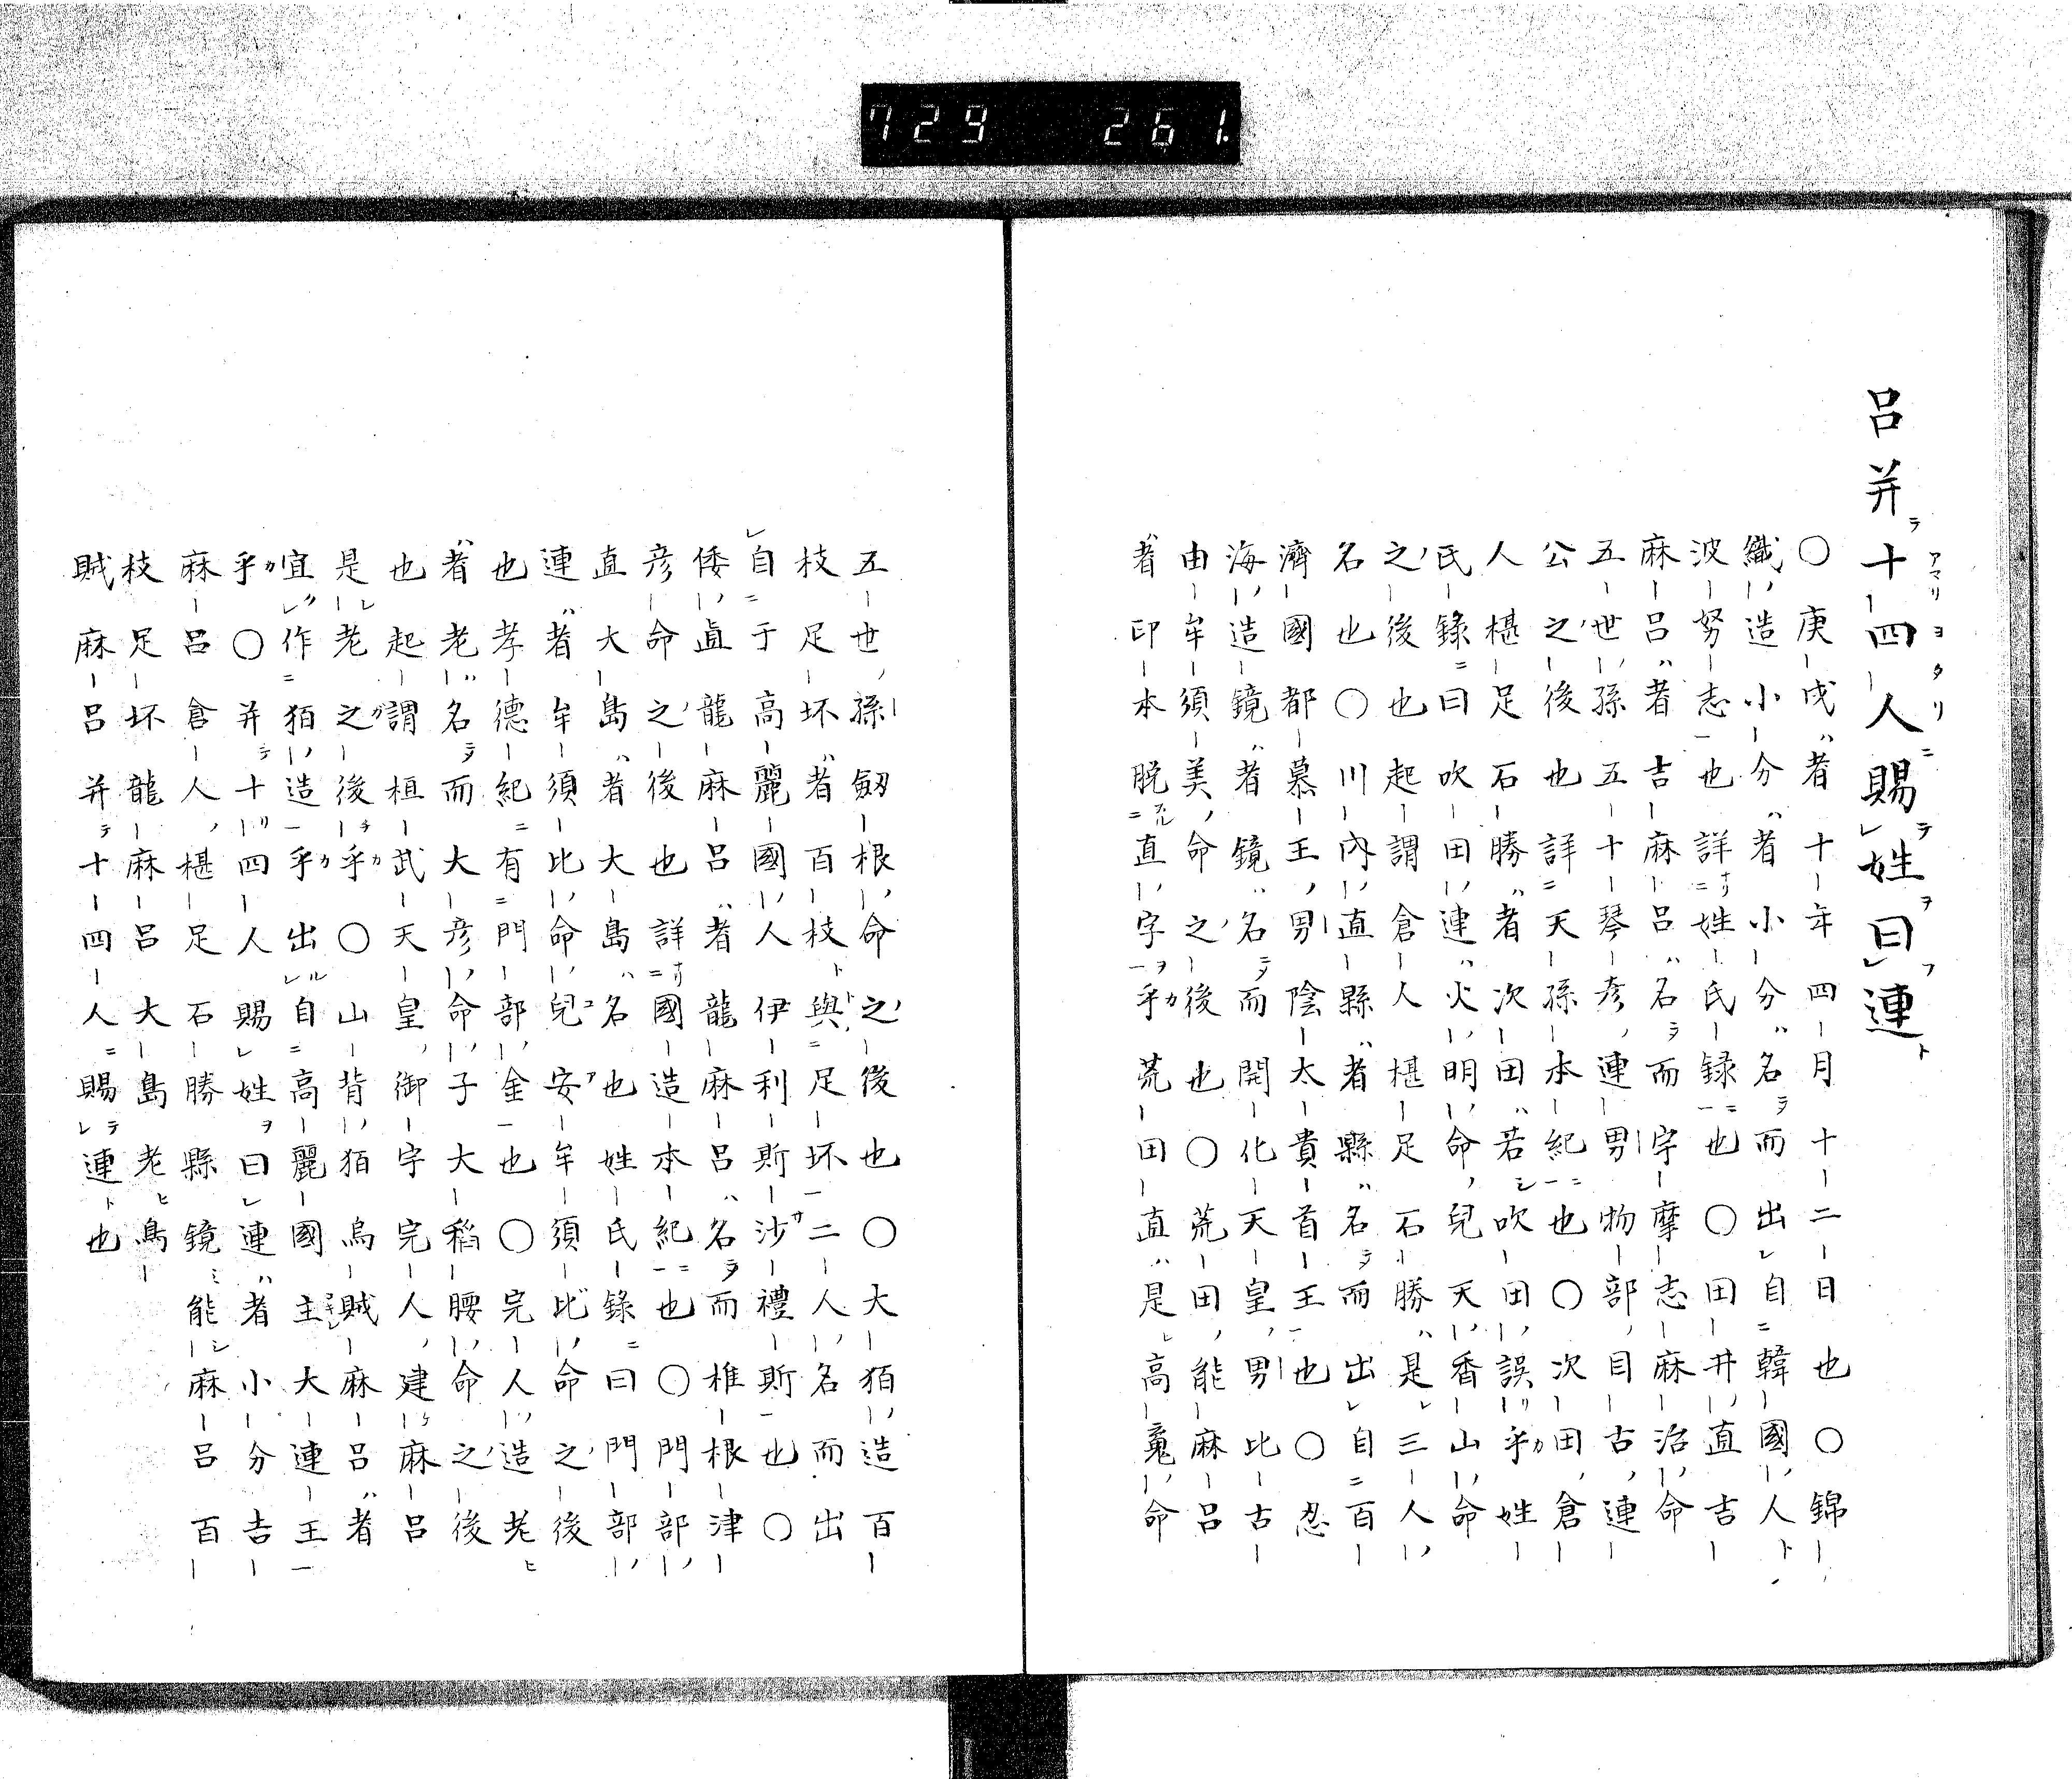 729 261.
呂并十四人賜姓曰連
〇庚戌者十年四月十二日也〇錦
織造小分者小分名而出自韓國人
波努志也詳姓氏録也〇田井直吉
麻呂者吉麻呂名而字摩志麻治命
五世孫五十琴彦連男物部目古連
公之後也詳天孫本紀也〇次田倉
人椹足石勝者次田若吹田誤乎姓
氏録曰吹田連火明命兒天香山命
之後也起謂倉人椹足石勝是三人
名也〇川內直縣者縣名而出自百
濟國都慕王男陰太貴首王也〇忍
海造鏡者鏡名而開化天皇男比古
由牟須美命之後也〇荒田能麻呂
者印本脫直字乎荒田直是高䰠命
五世孫劔根命之後也〇大狛造百
枝足坏者百枝與足坏二人名而出
自于高麗國人伊利斯沙禮斯也〇
倭直龍麻呂者龍麻呂名而椎根津
彦命之後也詳國造本紀也〇門部
直大島者大島名也姓氏錄曰門部
連者牟須比命兒安牟須比命之後
也孝德紀有門部金也〇宍人造老
者老名而大彦命子大稻腰命之後
也起謂桓武天皇御字宍人建麻呂
是老之後乎〇山背狛烏賊麻呂者
宜作狛造乎出自高麗國主大連王
乎〇并十四人賜姓曰連者小分吉
麻呂倉人椹足石勝縣鏡能麻呂百
枝足坏龍麻呂大島老烏
賊麻呂并十四人賜連也